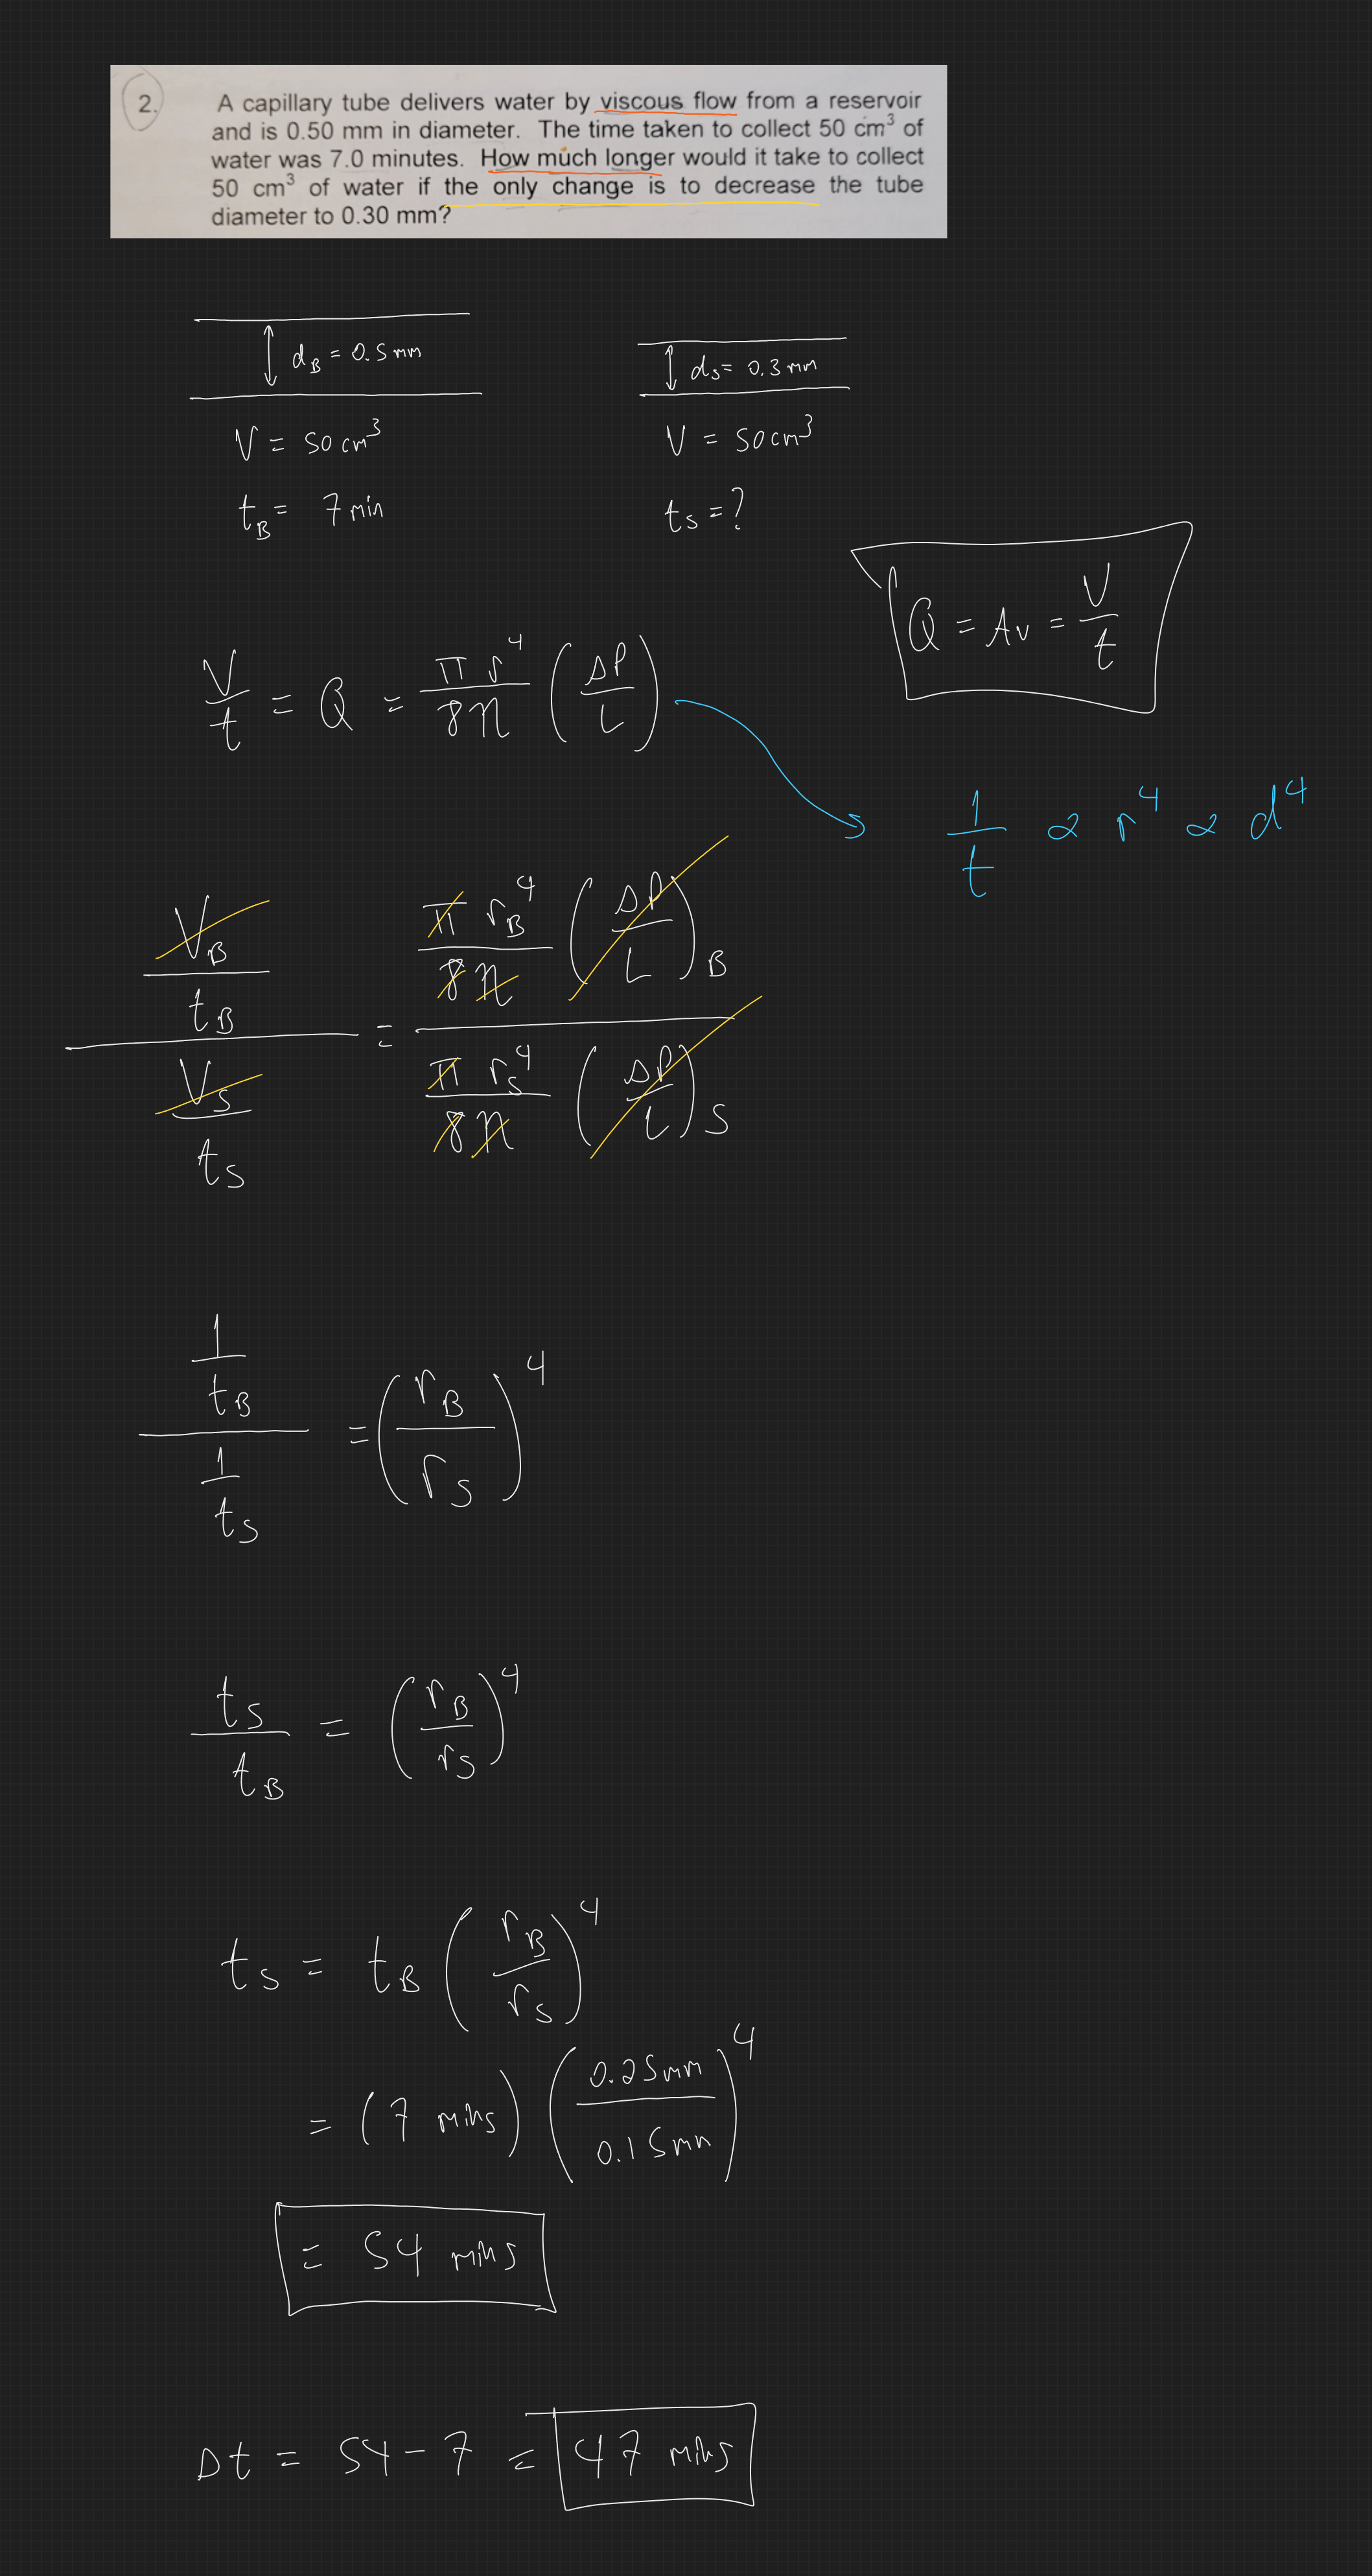 2. A capillary tube delivers water by viscous flow from a reservoir
and is 0.50 mm in diameter. The time taken to collect 50 cm³ of
water was 7.0 minutes. How much longer would it take to collect
50 cm³ of water if the only change is to decrease the tube
diameter to 0.30 mm?
d_B = 0.5 mm
d_S = 0.3 mm
V = 50 cm³
V = 50 cm³
t_B = 7 min
t_S = ?
Q = Av = V/t
V/t = Q = πr⁴/8η (ΔP/L)
1/t ∝ r⁴ ∝ d⁴
(V_B/t_B)/(V_S/t_S) = (π r_B⁴/8η (ΔP/L)_B)/(π r_S⁴/8η (ΔP/L)_S)
(1/t_B)/(1/t_S) = (r_B/r_S)⁴
t_S/t_B = (r_B/r_S)⁴
t_S = t_B (r_B/r_S)⁴
= (7 mins) (0.25mm/0.15mm)⁴
= 54 mins
Δt = 54 - 7 = 47 mins